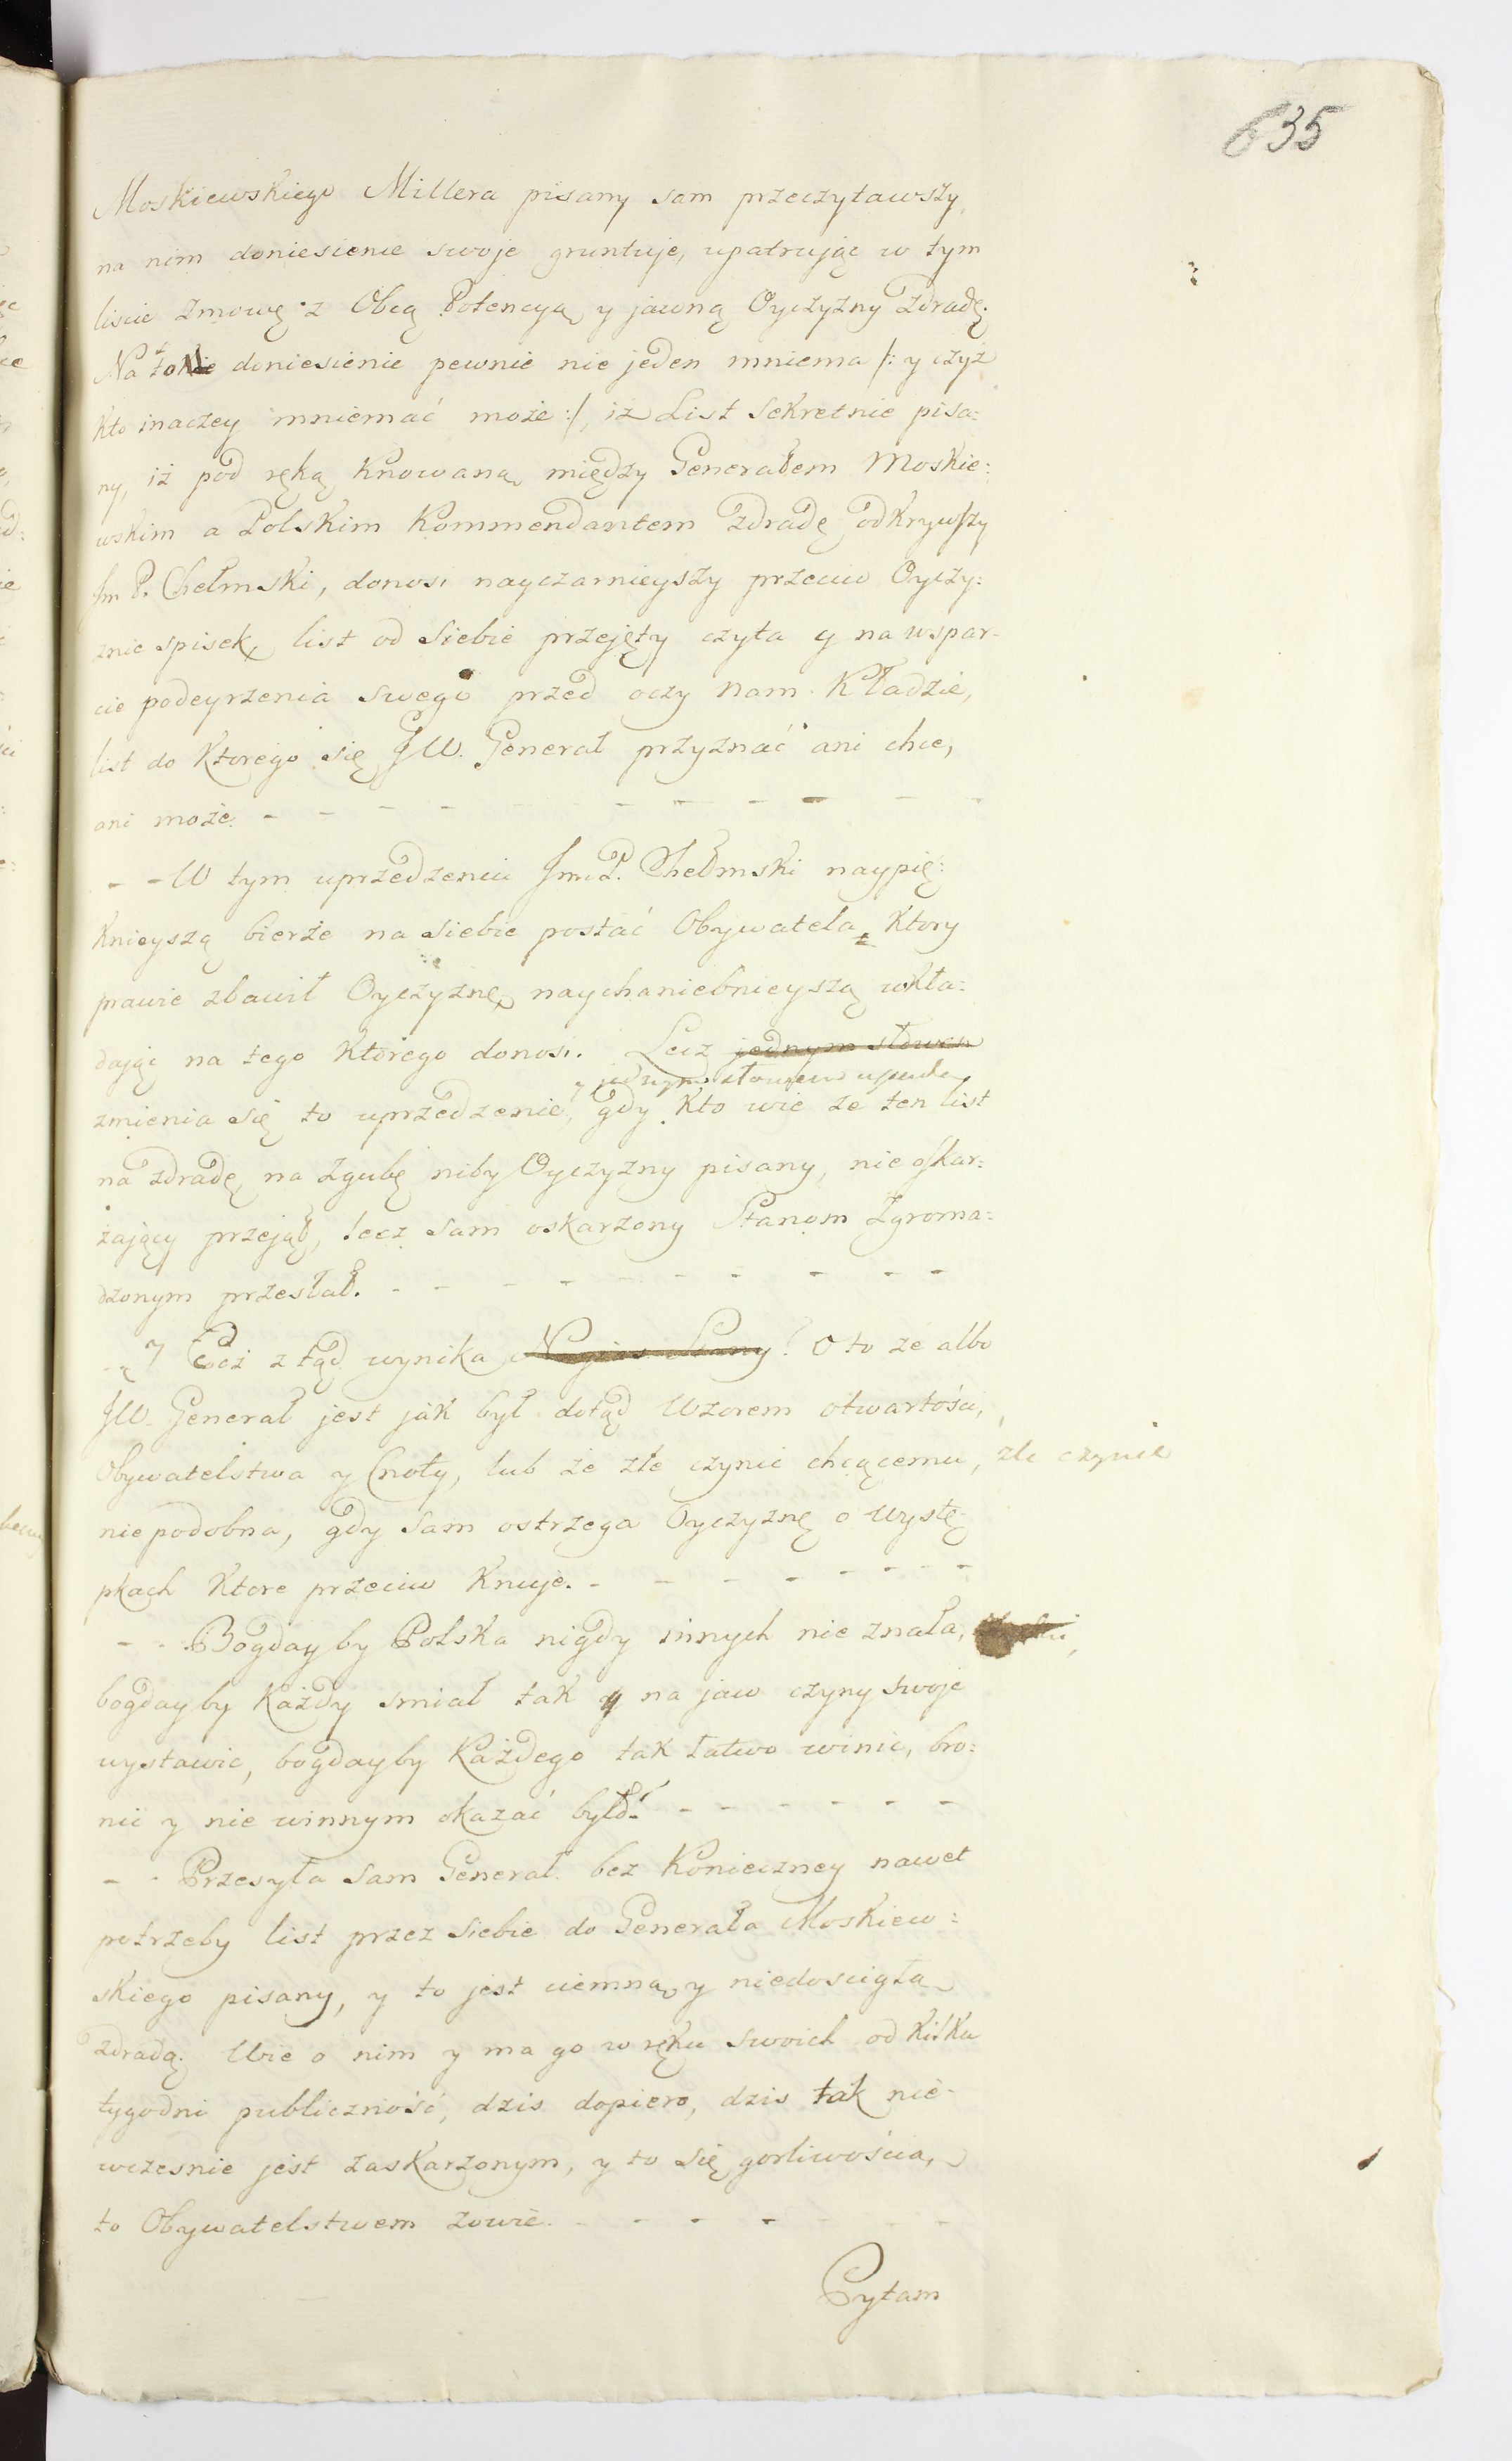 635
Moskiewskiego Millera pisany sam przeczytawszy,
na nim doniesienie swoje gruntuje, upatrując w tym
liscie zmowę z Obcą Potencyą, y jawną Oyczyzny zdradę.
Na takie doniesienie pewnie nie jeden mniema /: y czyż
kto inaczey mniemać może :/, iż List sekretnie pisa:
ny, iż pod ręką knowaną między Generałem Moskie:
wskim a Polskim Kommendantem zdradę odkrywszy
Jm P. Chełmski, donosi nayczarnieyszy przeciw Oyczy:
znie spisek, list od siebie przejęty czyta y na wspar-
cie podeyrzenia swego przed oczy nam kładzie,
list do ktorego się JW. Generał przyznać ani chce,
ani może. - - - - - - - - - -
- - W tym uprzedzeniu Jm P. Chełmski naypię:
knieyszą bierze na siebie postać Obywatela, ktory
prawie zbawił Oyczyznę, naychaniebnieyszą wkła:
dając na tego ktorego donosi. Lecz jednym słowem
y jednym słowem upada,
zmienia się to uprzedzenie, gdy kto wie ze ten list
na zdradę, na zgubę niby Oyczyzny pisany, nie oskar:
żający przejął, lecz sam oskarzony Stanom Zgroma:
dzonym przesłał. - - - - - - - - -
Coż z tąd wynika ? O to ze albo
JW. Generał jest jak był dotąd Wzorem otwartości,
Obywatelstwa y Cnoty, lub że złe czynic chcącemu, złe czynić
nie podobna, gdy sam ostrzega Oyczyznę o wystę:
pkach ktore przeciw knuje. - - - - - - -
- - Bogday by Polska nigdy innych nie znała,
bogday by każdy smiał tak y na jaw czyny swoje
wystawic, bogdayby każdego tak łatwo winic, bro:
nic y nie winnym okazać było! - - - - - -
- - Przesyła sam Generał bez konieczney nawet
potrzeby list przez siebie do Generała Moskiew:
skiego pisany, y to jest ciemną y niedoscigłą
zdradą. Wie o nim y ma go w ręku swoich od kilku
tygodni publiczność, dzis dopiero, dzis tak nie-
wczesnie jest zaskarzonym, y to się gorliwością,
to Obywatelstwem zowie. - - - - - -
Pytam